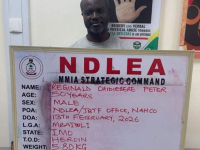 NDLEA
MNIA STRATEGIC COMMAND
NAME: REGINALD PETER
AGE: 50 YEARS
SEX: MALE
POA: NDLEA/JBTF OFFICE, NAHCO
DOA: 13TH FEBRUARY, 2026
LGA: MBAITOLI
STATE: IMO
TOH: HEROIN
WEIGHT: 5.80KG